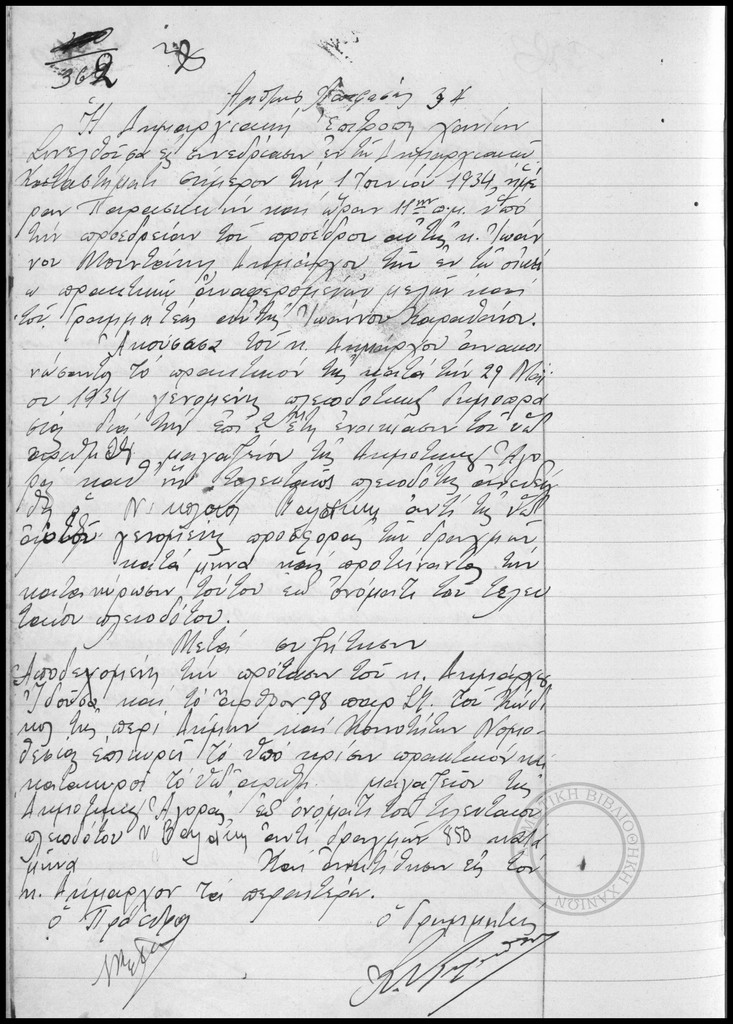 362
Αριθμός Αποφάσεως 34
Ἡ Δημαρχιακή Ἐπιτροπή Χανίων
Συνελθοῦσα εἰς συνεδρίασιν ἐν τῷ Δημαρχιακῷ
Καταστήματι σήμερον τήν 1 Ἰουνίου 1934, ἡμέ
ραν Παρασκευήν καί ὥραν 11ην π.μ. ὑπό
τήν προεδρείαν τοῦ προέδρου αὐτῆς κ. Ἰωάν
νου Μουντάκη Δημάρχου τῶν ἐν τῷ οἰκεί
ῳ πρακτικῷ ἀναφερομένων μελῶν καί
τοῦ Γραμματέως αὐτῆς Ἰωάννου Καραθάνου.
Ἀκούσασα τοῦ κ. Δημάρχου ἀνακοι
νώσαντος τό πρακτικόν τῆς κατά τήν 29 Μαΐ
ου 1934 γενομένης πλειοδοτικῆς δημοπρα
σίας διά τήν ἐπί 2 ἔτη ἐνοικίασιν τοῦ ὑπ'
ἀριθμ. μαγαζείου τῆς Δημοτικῆς Ἀγο
ρᾶς καθ' ἥν τελευταῖος πλειοδότης ἀνεδεί
χθη ὁ Νικόλαος ἀντί τῆς ὑπ'
αὐτοῦ γενομένης προσφορᾶς τῶν δραχμῶν
κατά μῆνα καί προτείναντος τήν
κατακύρωσιν τούτου ἐπ' ὀνόματι τοῦ τελευ
ταίου πλειοδότου.
Μετά συζήτησιν
Ἀποδεχομένη τήν πρότασιν τοῦ κ. Δημάρχου
Ἰδοῦσα καί τό ἄρθρον 98 παρ. τοῦ Κώδι
κος τῆς περί Δήμων καί Κοινοτήτων Νομο
θεσίας ἐπικυροῖ τό ὑπό κρίσιν πρακτικόν καί
κατακυροῖ τό ὑπ' ἀριθμ. μαγαζεῖον τῆς
Δημοτικῆς Ἀγορᾶς ἐπ' ὀνόματι τοῦ τελευταίου
πλειοδότου Ν ἀντί δραχμῶν 850 κατά
μῆνα Καί ἀνατίθησιν εἰς τόν
κ. Δήμαρχον τά περαιτέρω.
ὁ Πρόεδρος ὁ Γραμματεύς
ΔΗΜΟΤΙΚΗ ΒΙΒΛΙΟΘΗΚΗ ΧΑΝΙΩΝ